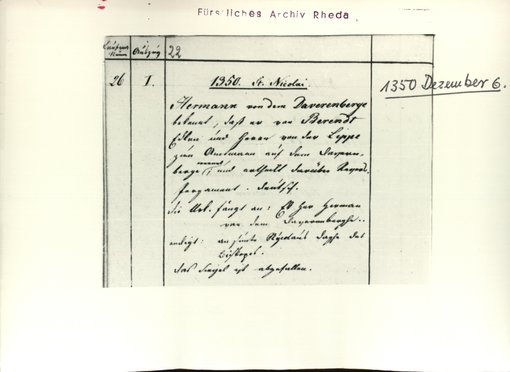 Fürstliches Archiv Rheda
Laufende Num̅
Auszug
22
26
I.
1350. St. Nicolai.
1350 Dezember 6.
Hermann von dem Daverenberge
bekennt, daß er von Berendt
Edlen und Herrn von der Lippe
zum Amtmann auf dem Davern-
berge und darüber Revers.
Pergament. deutsch.
die Urk. fängt an: Ich Her Herman
van dem Davernberghe..
endigt: an sunte Nycolaus daghe des
das Siegel ist abgefallen.